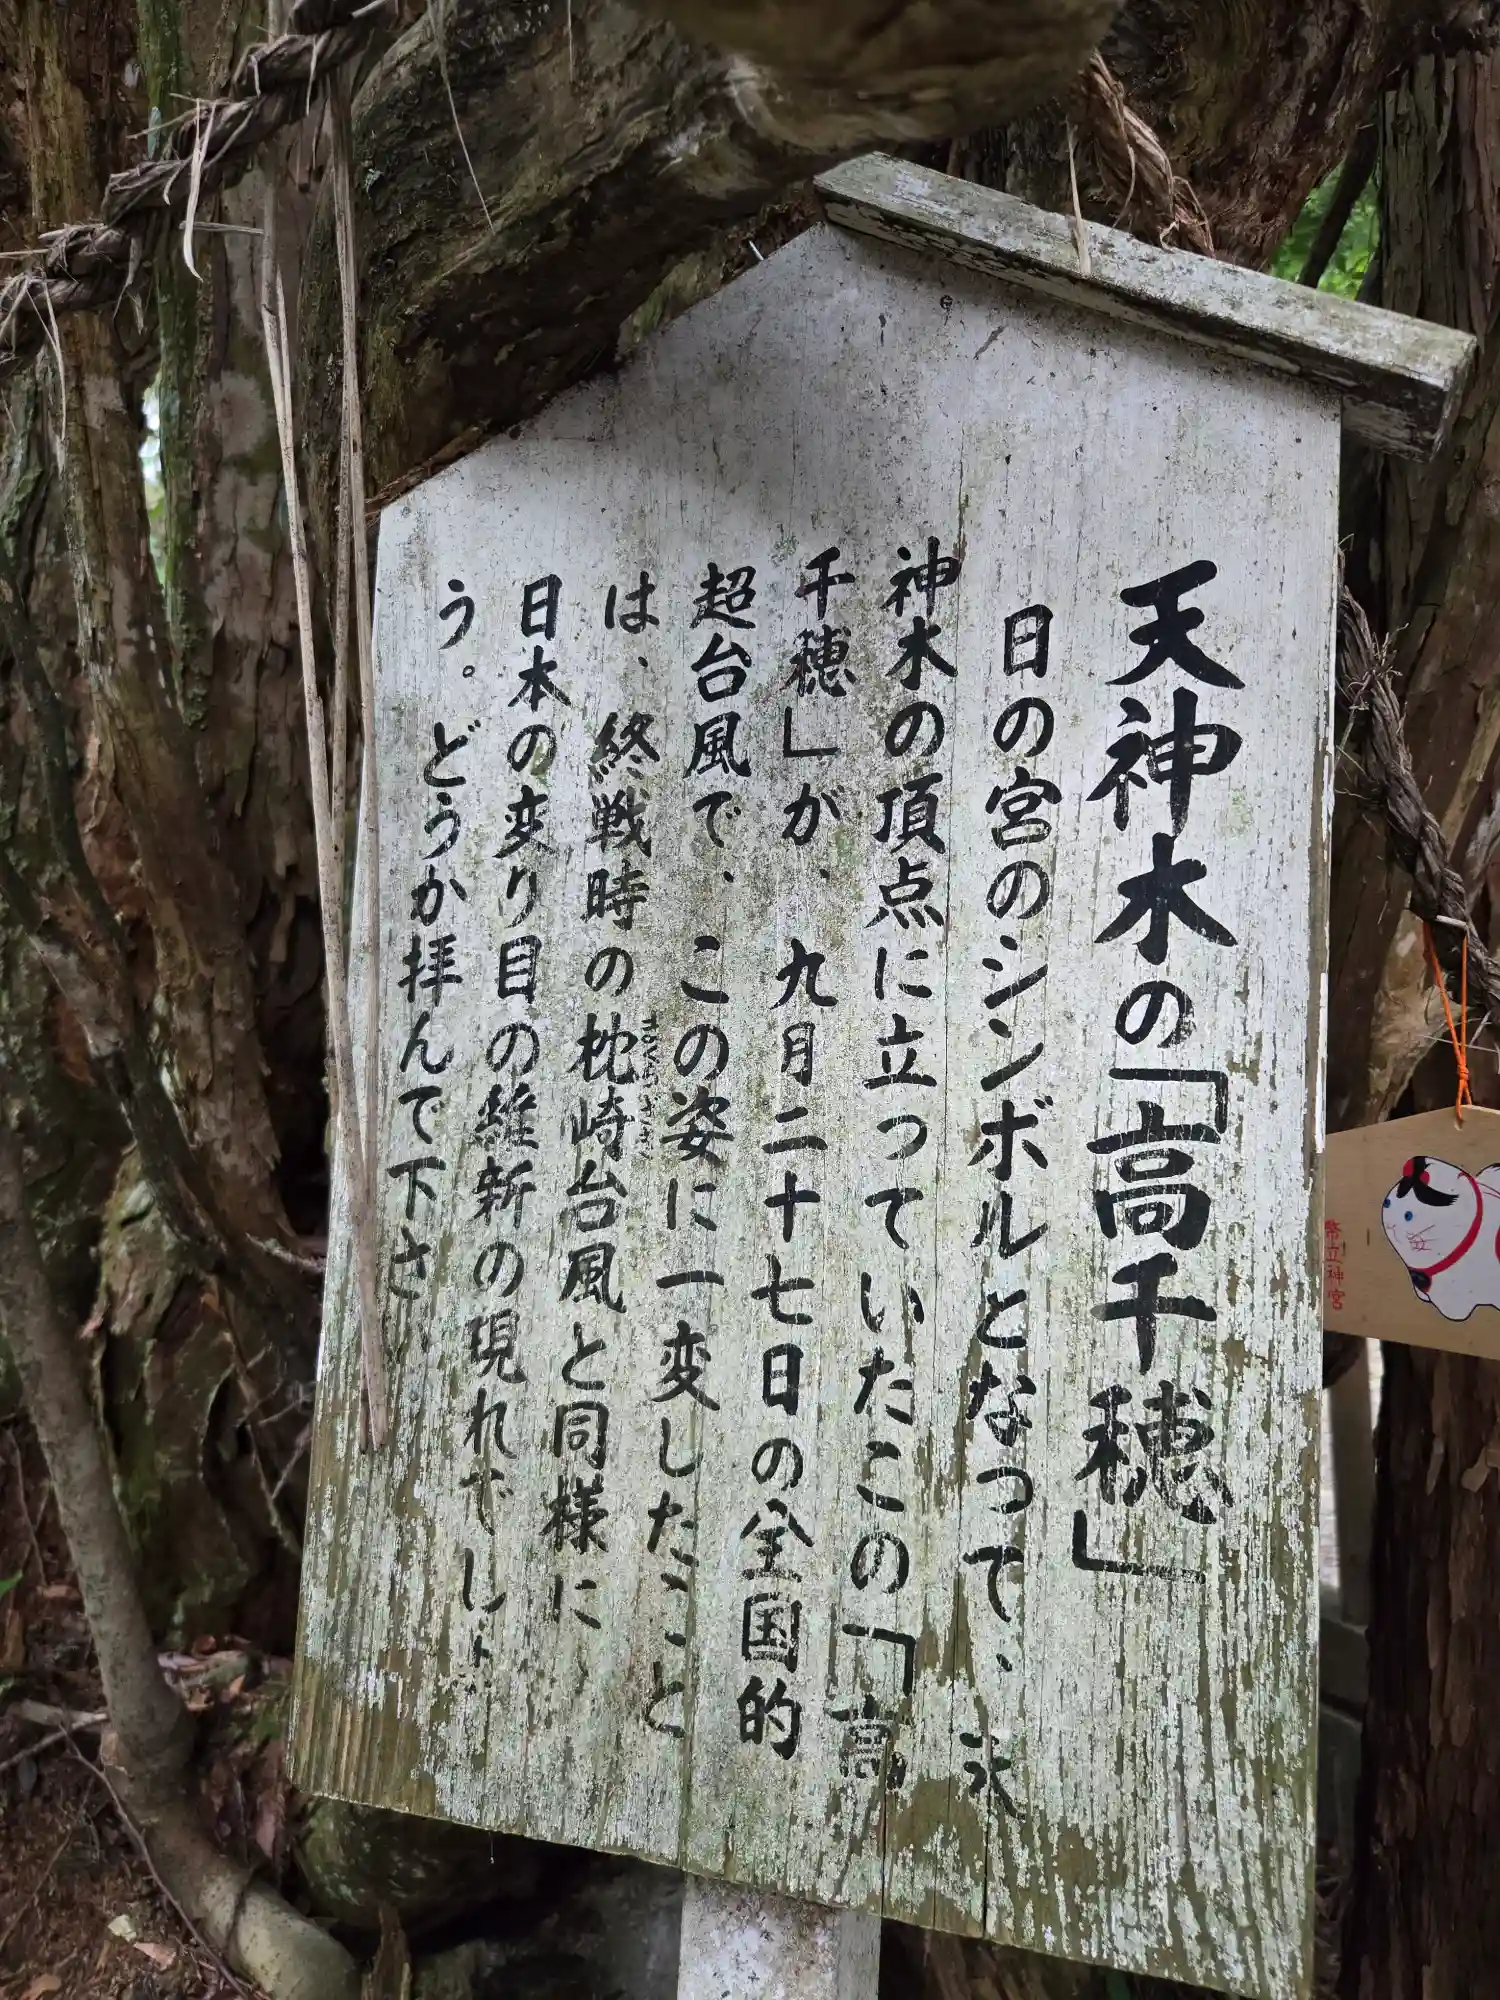 天神木の「高千穂」
日の宮のシンボルとなって、天
神木の頂点に立っていたこの「高
千穂」が、九月二十七日の全国的
超台風で、この姿に一変したこと
は、終戦時の枕崎台風と同様に、
まくらざき
日本の変り目の維新の現れでしょ
う。どうか拝んで下さい
幣立神宮